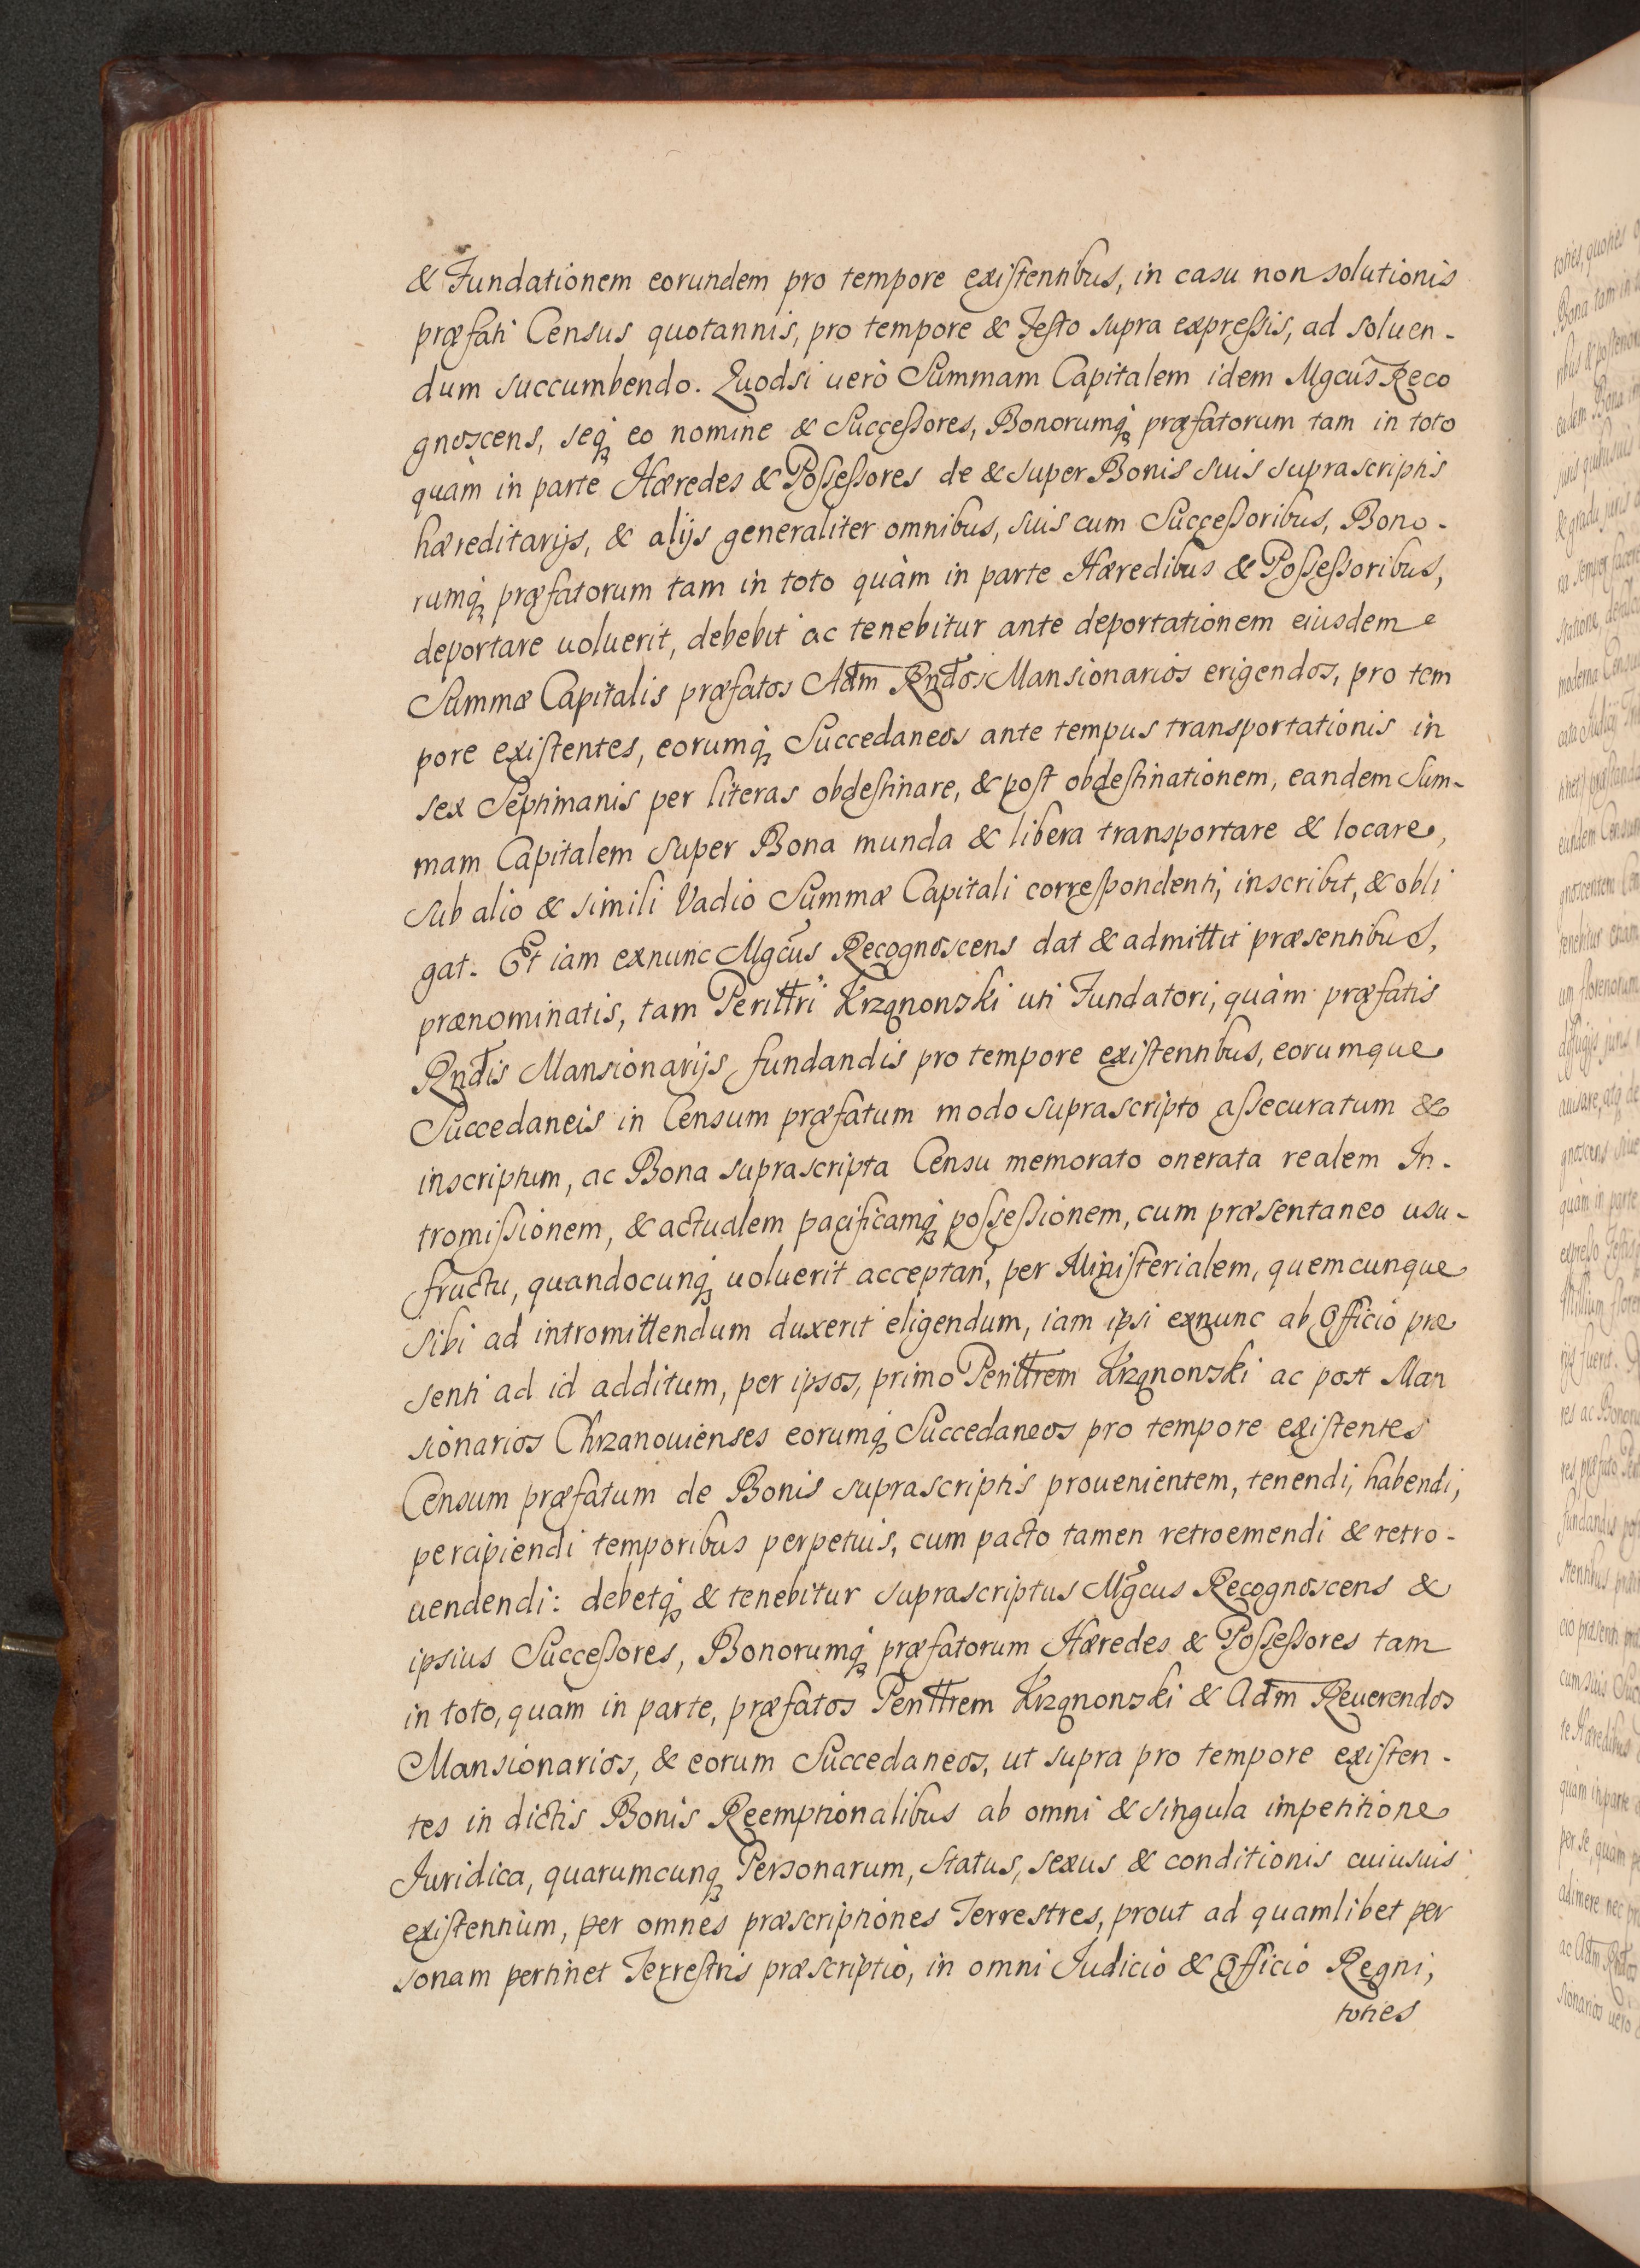 & Fundationem eorundem pro tempore existentibus, in casu non solutionis
præfati Census quotannis, pro tempore & Festo supra expressis, ad soluen-
dum succumbendo. Quodsi uerò Summam Capitalem idem Mgcus Reco
gnoscens, seq̨ eo nomine & Successores, Bonorumq̨ præfatorum tam in toto
quàm in parte Hæredes & Possessores de & super Bonis suis suprascriptis
hæreditarijs, & alijs generaliter omnibus, suis cum Successoribus, Bono-
rumq̨ præfatorum tam in toto quàm in parte Hæredibus & Possessoribus,
deportare uoluerit, debebit ac tenebitur ante deportationem eiusdem
Summæ Capitalis præfatos Adm Rndos Mansionarios erigendos, pro tem
pore existentes, eorumq̨ Succedaneos ante tempus transportationis in
sex Septimanis per literas obdestinare, & post obdestinationem, eandem Sum-
mam Capitalem super Bona munda & libera transportare & locare,
sub alio & simili Vadio Summæ Capitali correspondenti, inscribit, & obli
gat. Et iam exnunc Mgcus Recognoscens dat & admittit præsentibus,
prænominatis, tam Perilltri Krząnowski uti Fundatori, quàm præfatis
Rndis Mansionarijs fundandis pro tempore existentibus, eorumque
Succedaneis in Censum præfatum modo suprascripto assecuratum &
inscriptum, ac Bona suprascripta Censu memorato onerata realem In-
tromissionem, & actualem pacificamq̨ possessionem, cum præsentaneo usu-
fructu, quandocunq̨ uoluerit acceptari, per Ministerialem, quemcunque
sibi ad intromittendum duxerit eligendum, iam ipsi exnunc ab Officio præ
senti ad id additum, per ipsos, primo Perilltrem Krząnowski ac post Man
sionarios Chrzanouienses eorumq̨ Succedaneos pro tempore existentes
Censum præfatum de Bonis suprascriptis prouenientem, tenendi, habendi,
percipiendi temporibus perpetuis, cum pacto tamen retroemendi & retro-
uendendi: debetq̨ & tenebitur suprascriptus Mgcus Recognoscens &
ipsius Successores, Bonorumq̨ præfatorum Hæredes & Possessores tam
in toto, quàm in parte, præfatos Perilltrem Krząnowski & Adm Reuerendos
Mansionarios, & eorum Succedaneos, ut supra pro tempore existen-
tes in dictis Bonis Reemptionalibus ab omni & singula impetitione
Iuridica, quarumcunq̨ Personarum, status, sexus & conditionis cuiusuis
existentium, per omnes præscriptiones Terrestres, prout ad quamlibet per
sonam pertinet Terrestris præscriptio, in omni Iudicio & Officio Regni,
toties